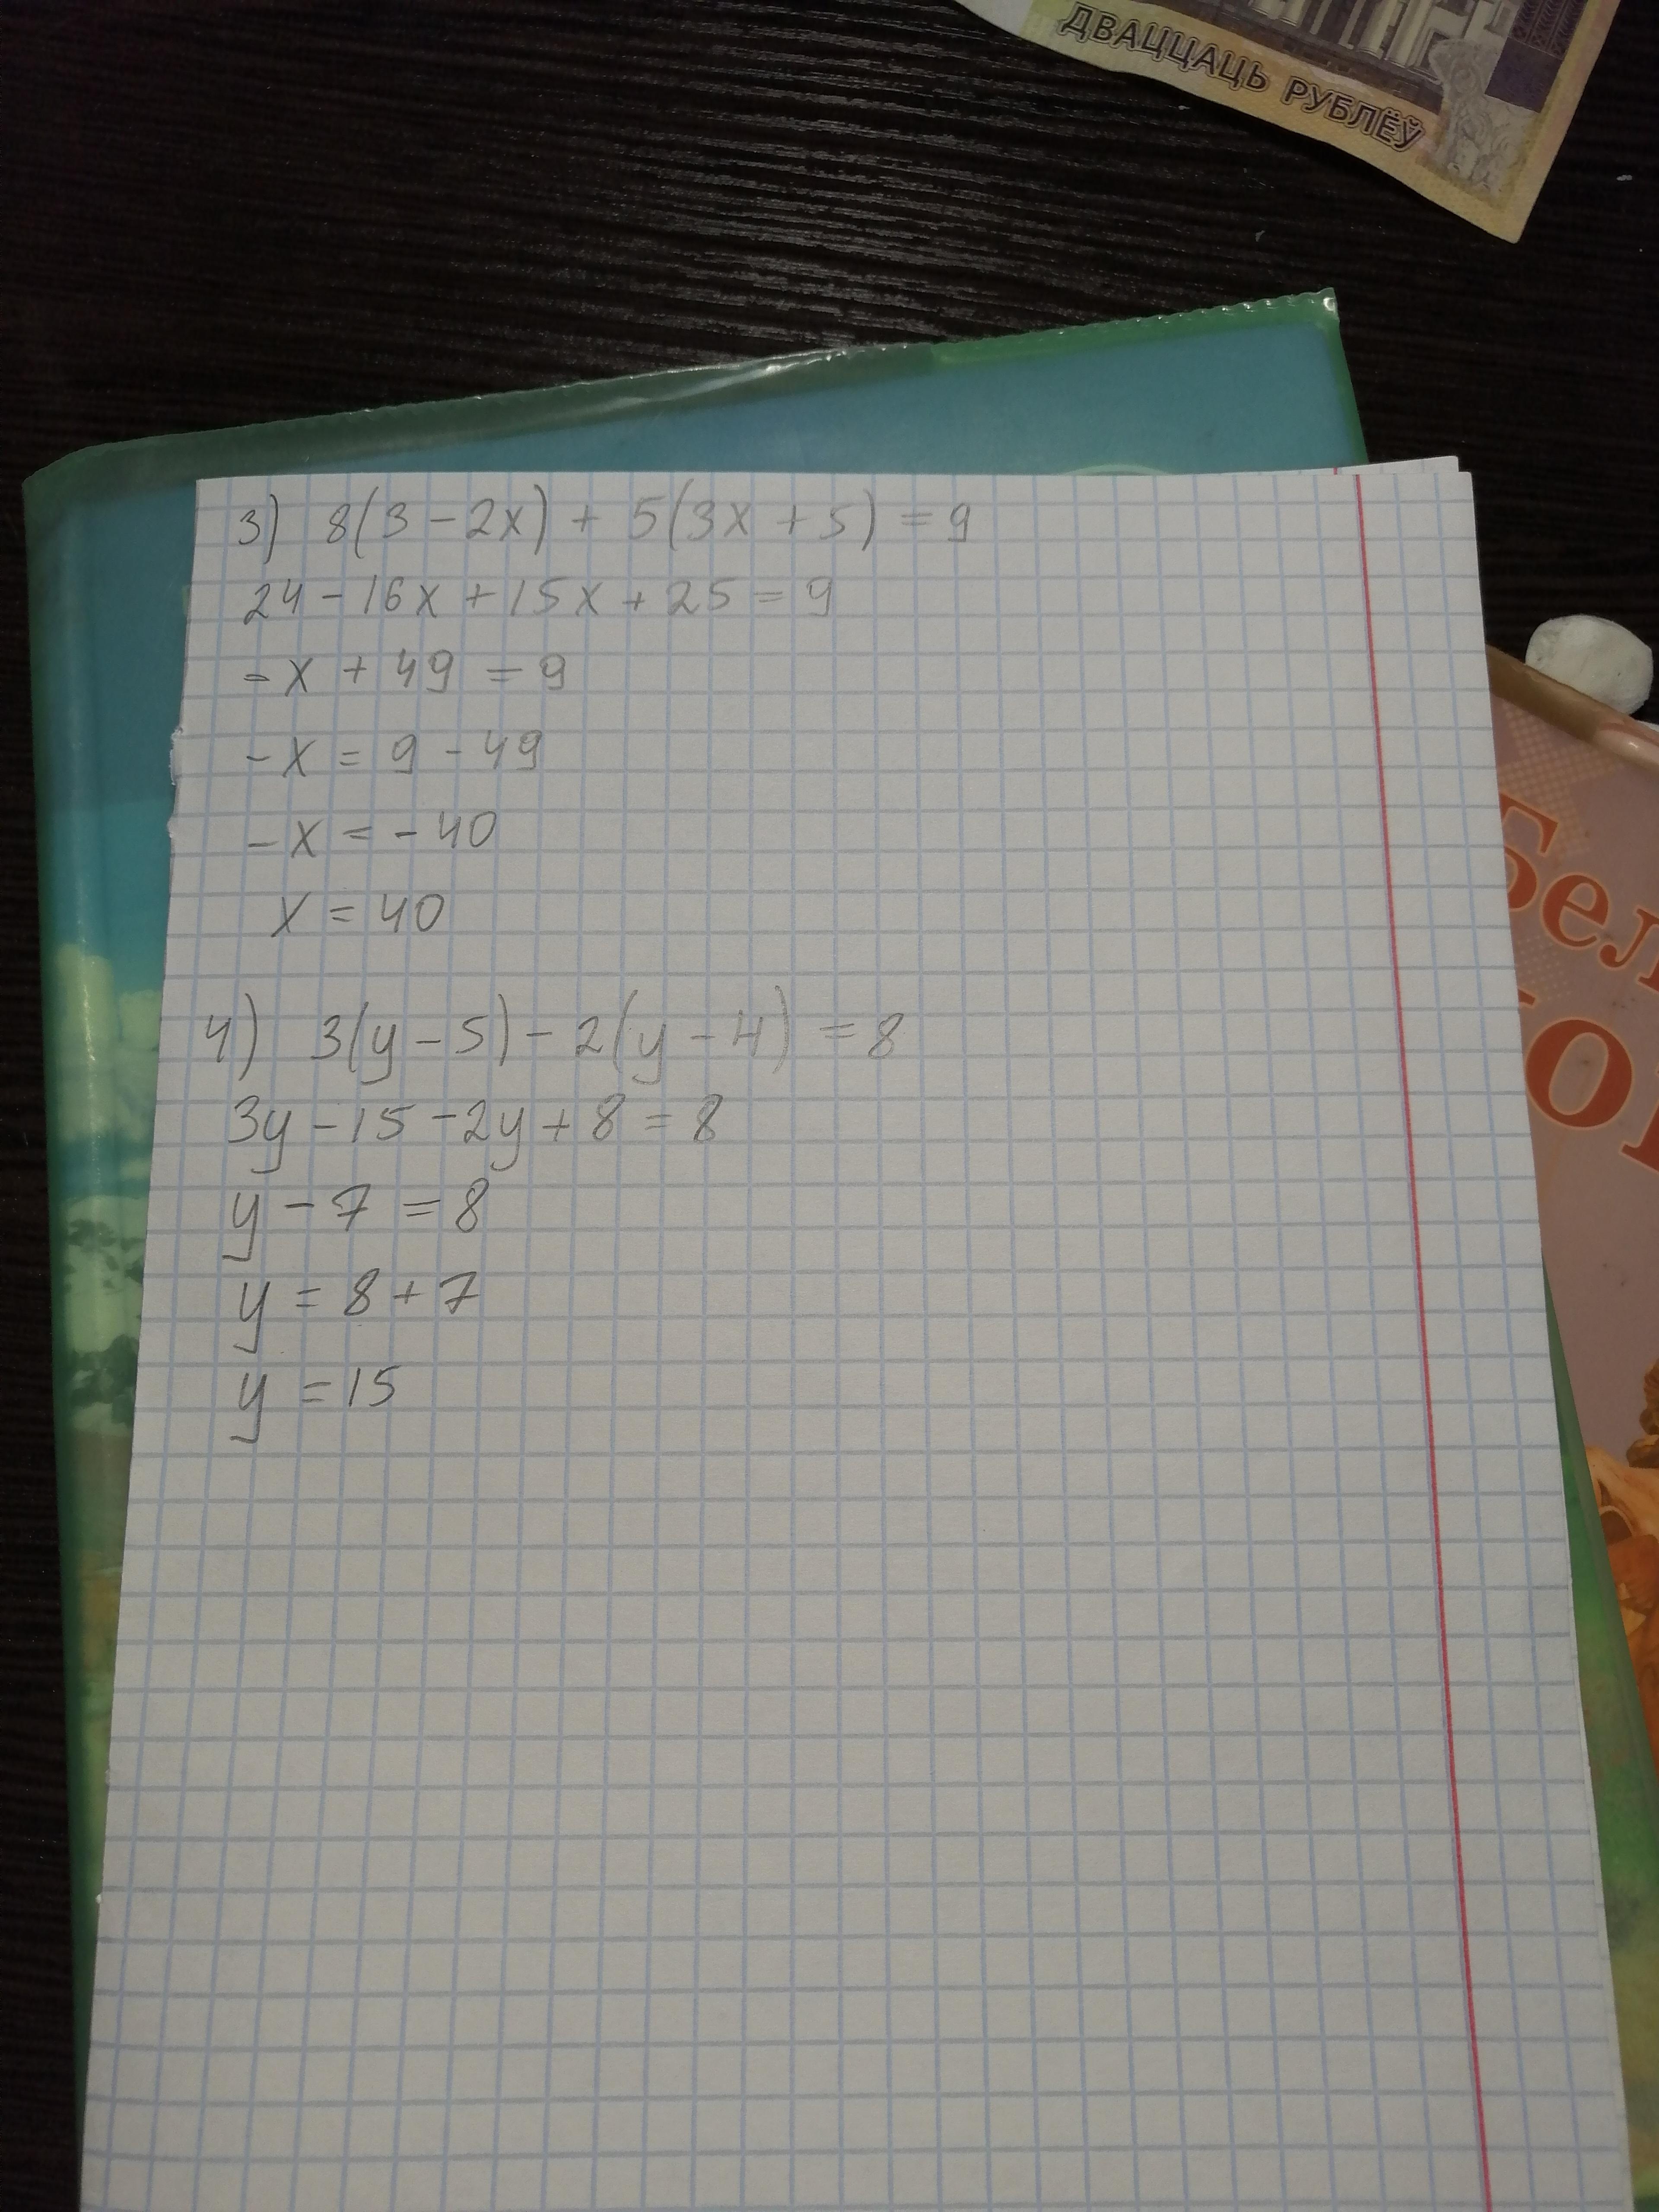 ДВАЦЦАЦЬ РУБЛЁЎ
3) 8(3 - 2x) + 5(3x + 5) = 9
24 - 16x + 15x + 25 = 9
-x + 49 = 9
-x = 9 - 49
-x = -40
x = 40
4) 3(y - 5) - 2(y - 4) = 8
3y - 15 - 2y + 8 = 8
y - 7 = 8
y = 8 + 7
y = 15
Бел